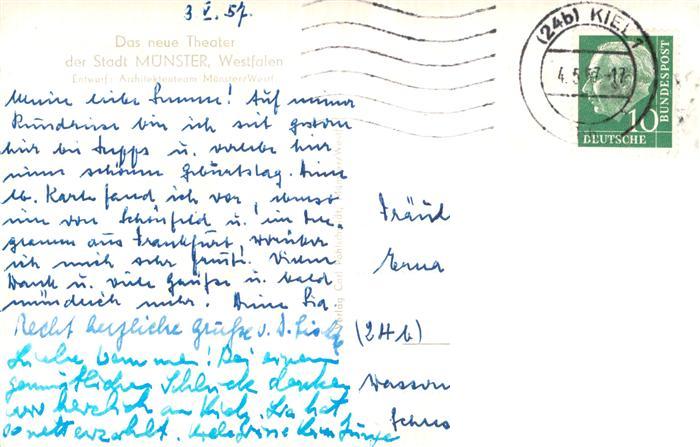 3 V. 57.
Das neue Theater
der Stadt MÜNSTER, Westfalen
Entwurf: Architektenteam Münster/Westf.
Meine liebe ! Auf meiner
Rundreise bin ich seit gestern
hier bei u. verlebe hier
einen schönen Geburtstag. Deine
lb. Karte fand ich vor, ebenso
von Schönfeld u. ein Tele-
gramm aus Frankfurt, worüber
ich mich sehr freute. Vielen
Dank u. viele Grüße u. bald
mündlich mehr. Deine Lia
Recht herzliche Grüße v.
Liebe ! Bei einem
gemütlichen Schluck denken
wir herzlich an Kiel. Lia hat
so nett erzählt.
Verlag Carl
(24b) KIEL 1
4.5.57-17
10
DEUTSCHE
BUNDESPOST
Fräul
Erna
(24b)